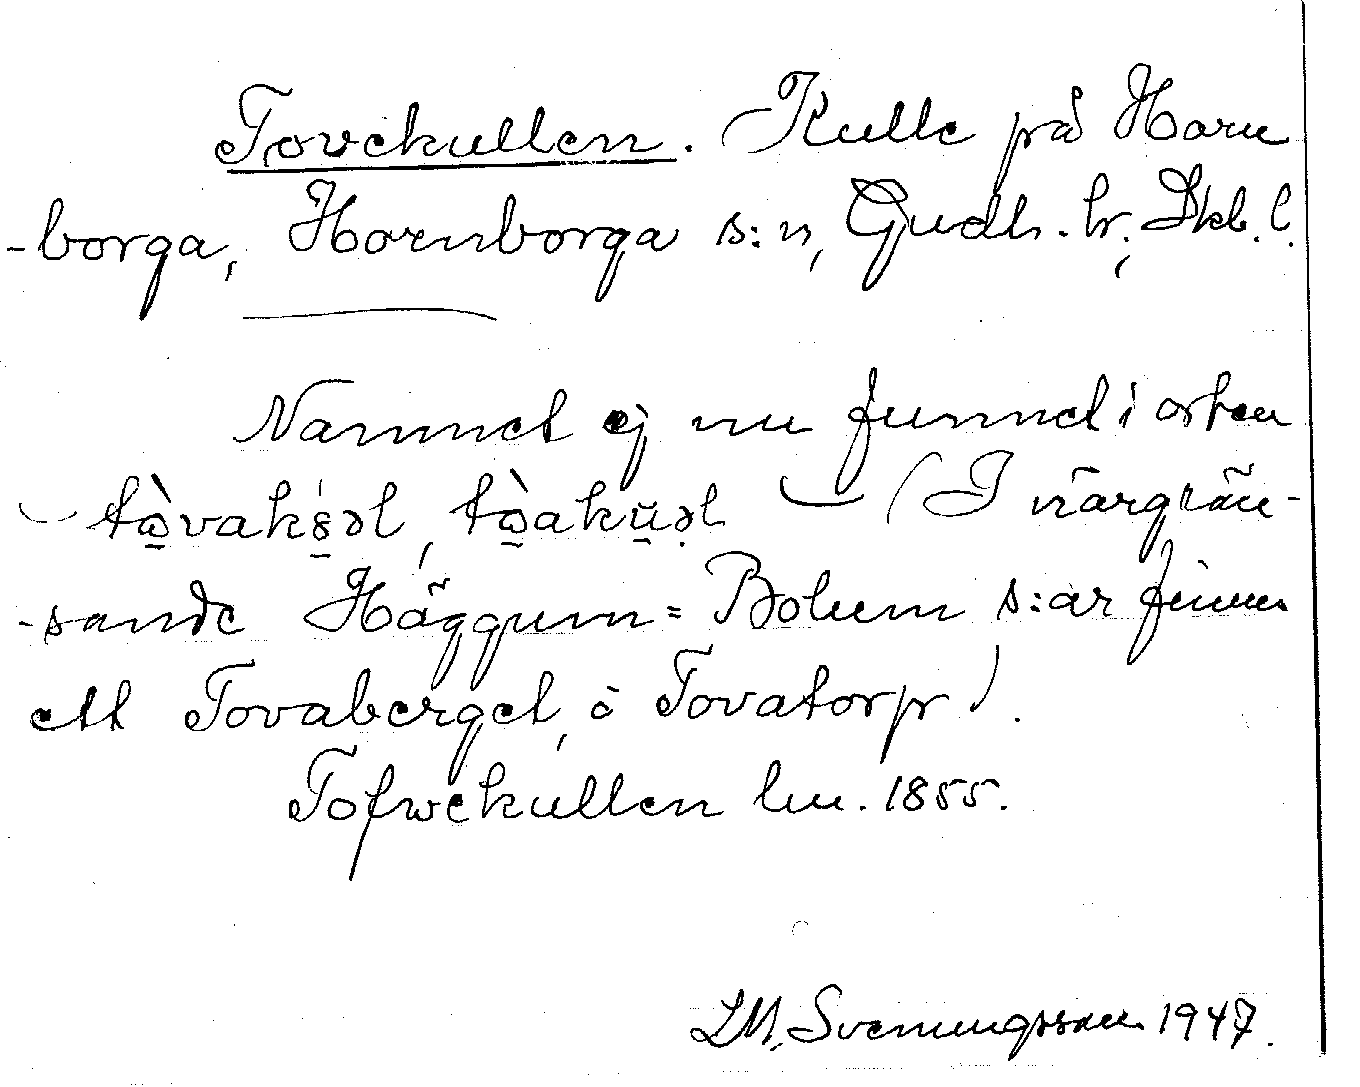 Tovekullen. Kulle på Horn
-borga, Hornborga s:n, Gudh. hr, Skb. l.
Namnet ej nu funnet i orten
tò̱vakȣ̱əl, tò̱akŭ̱əl (I närgrän-
-sande Häggum = Bolum s:ar finnes
ett Tovaberget, o Tovatorp).
Tofwekullen lm. 1855.
L.M. Svenungsson 1947.